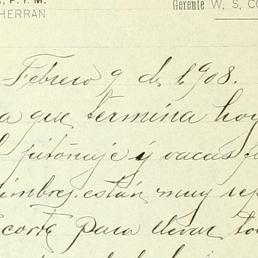 P. T. M.
HERRAN
Gerente W. S. CO
Febrero 9 de 1908.
a que termina hoy
pitonaje y vacas f
imbres están muy rep
corte para llevar to